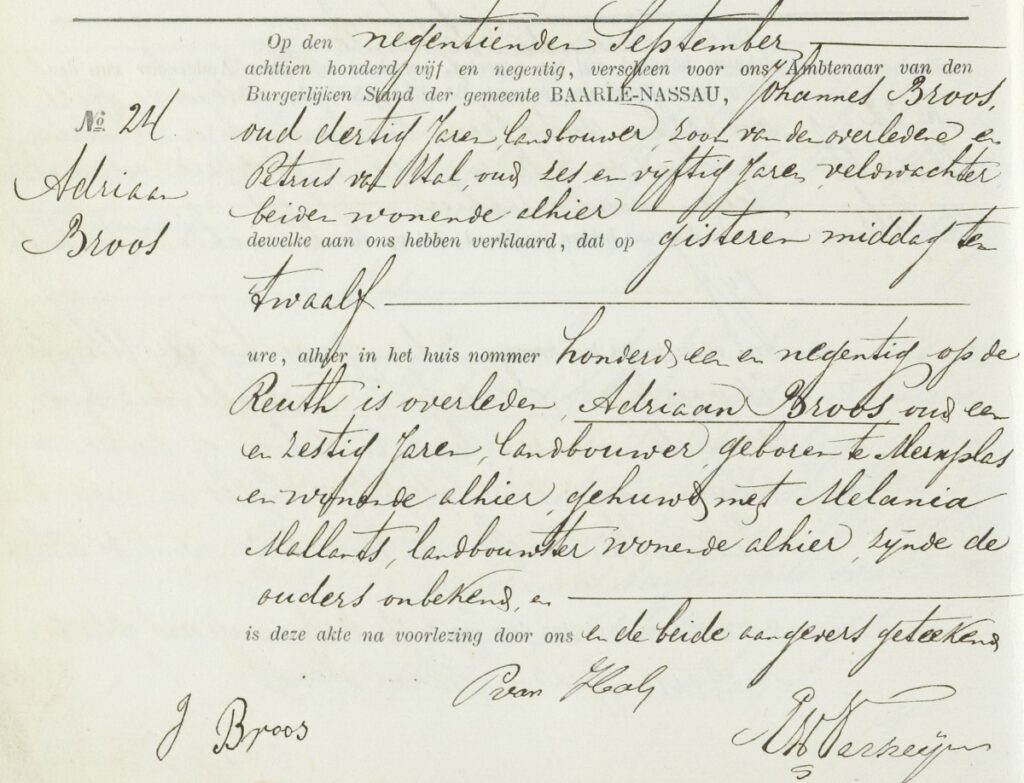 Op den negentienden September
achttien honderd vijf en negentig, verscheen voor ons Ambtenaar van den
Burgerlijken Stand der gemeente BAARLE-NASSAU, Johannes Broos,
No 24
oud dertig Jaren, landbouwer, zoon van den overledene en
Adriaan
Petrus van Hal, oud zes en vijftig Jaren, veldwachter
beiden wonende alhier
Broos
dewelke aan ons hebben verklaard, dat op gisteren middag ten
twaalf
ure, alhier in het huis nommer honderd een en negentig op de
Reuth is overleden, Adriaan Broos, oud een
en zestig Jaren, landbouwer, geboren te Merxplas
en wonende alhier, gehuwd met Melania
Mallants, landbouwster wonende alhier, zijnde de
ouders onbekend, en
is deze akte na voorlezing door ons en de beide aangevers geteekend
P van Hal
J Broos